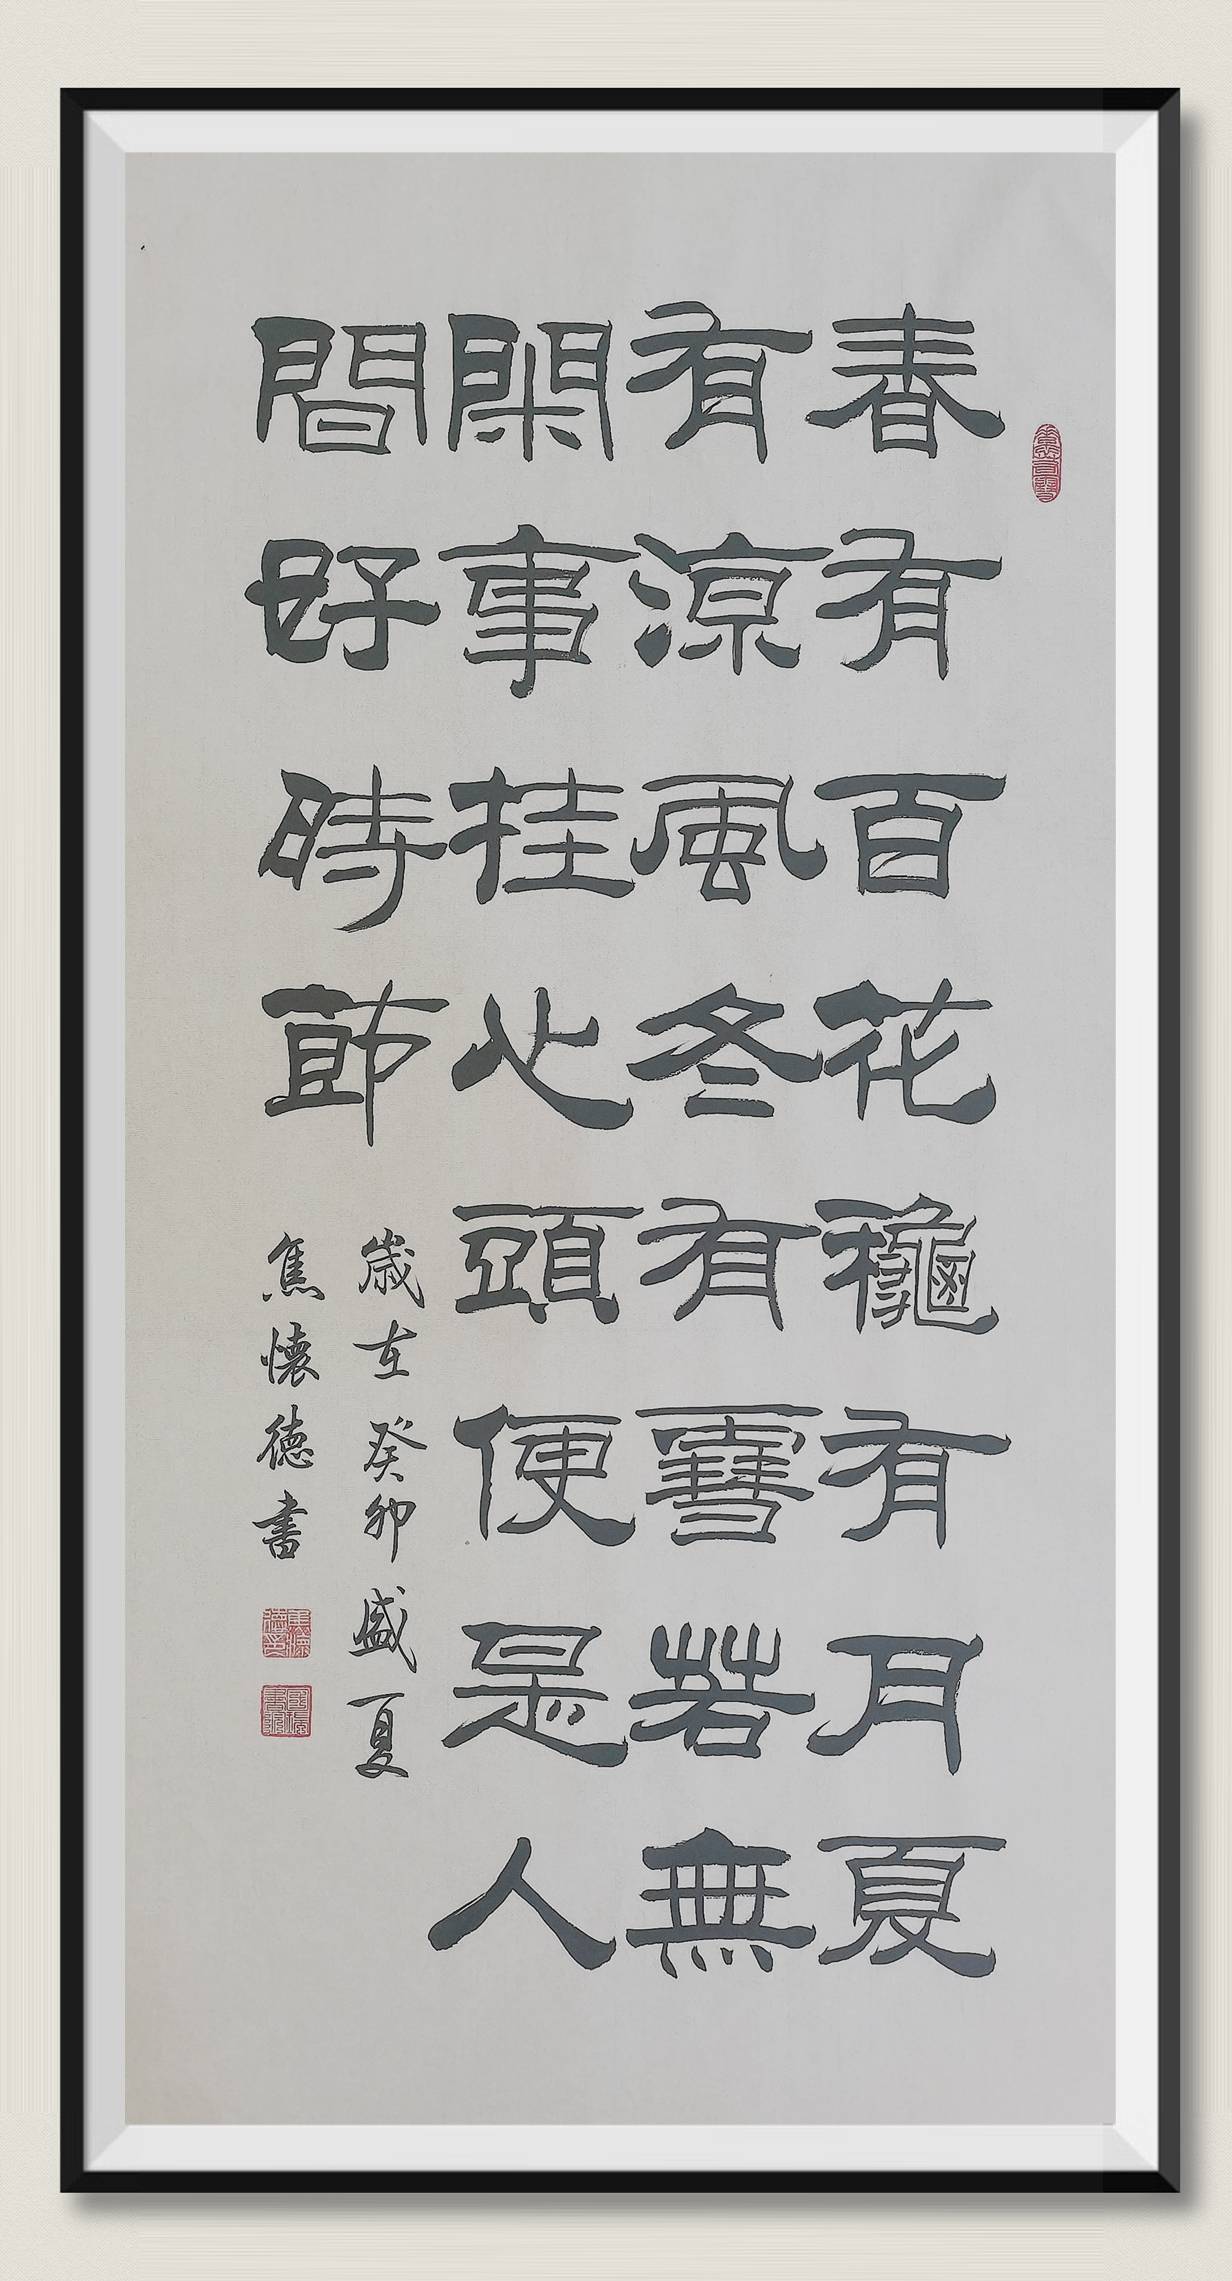 春有百花龝有月夏
有凉風冬有雪若無
閑事挂心頭便是人
間好時節
歲在癸卯盛夏
焦懷德書